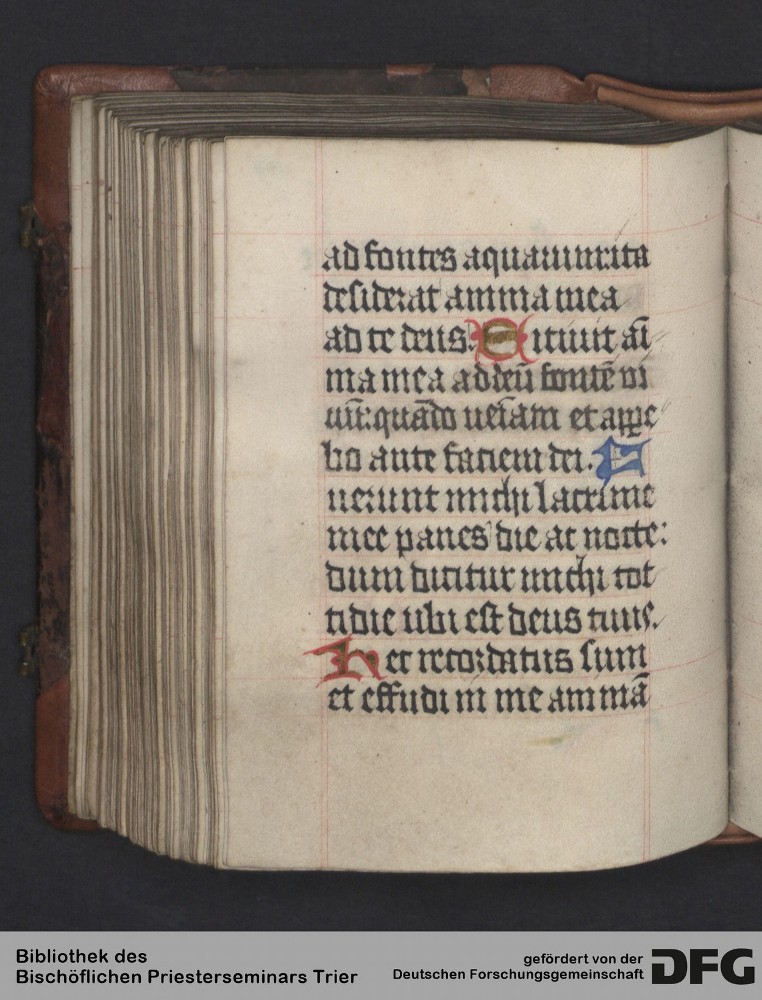 ad fontes aquarum: ita
desiderat anima mea
ad te deus. Sitiuit ai
ma mea ad deū fontē vi
uū: quādo ueīam et appe
bo ante faciem dei. F
uerunt michi lacrime
mee panes die ac nocte:
dum dicitur michi cot
tidie ubi est deus tuus.
Hec recordatus sum
et effudi in me animā
Bibliothek des
Bischöflichen Priesterseminars Trier
gefördert von der
Deutschen Forschungsgemeinschaft
DFG